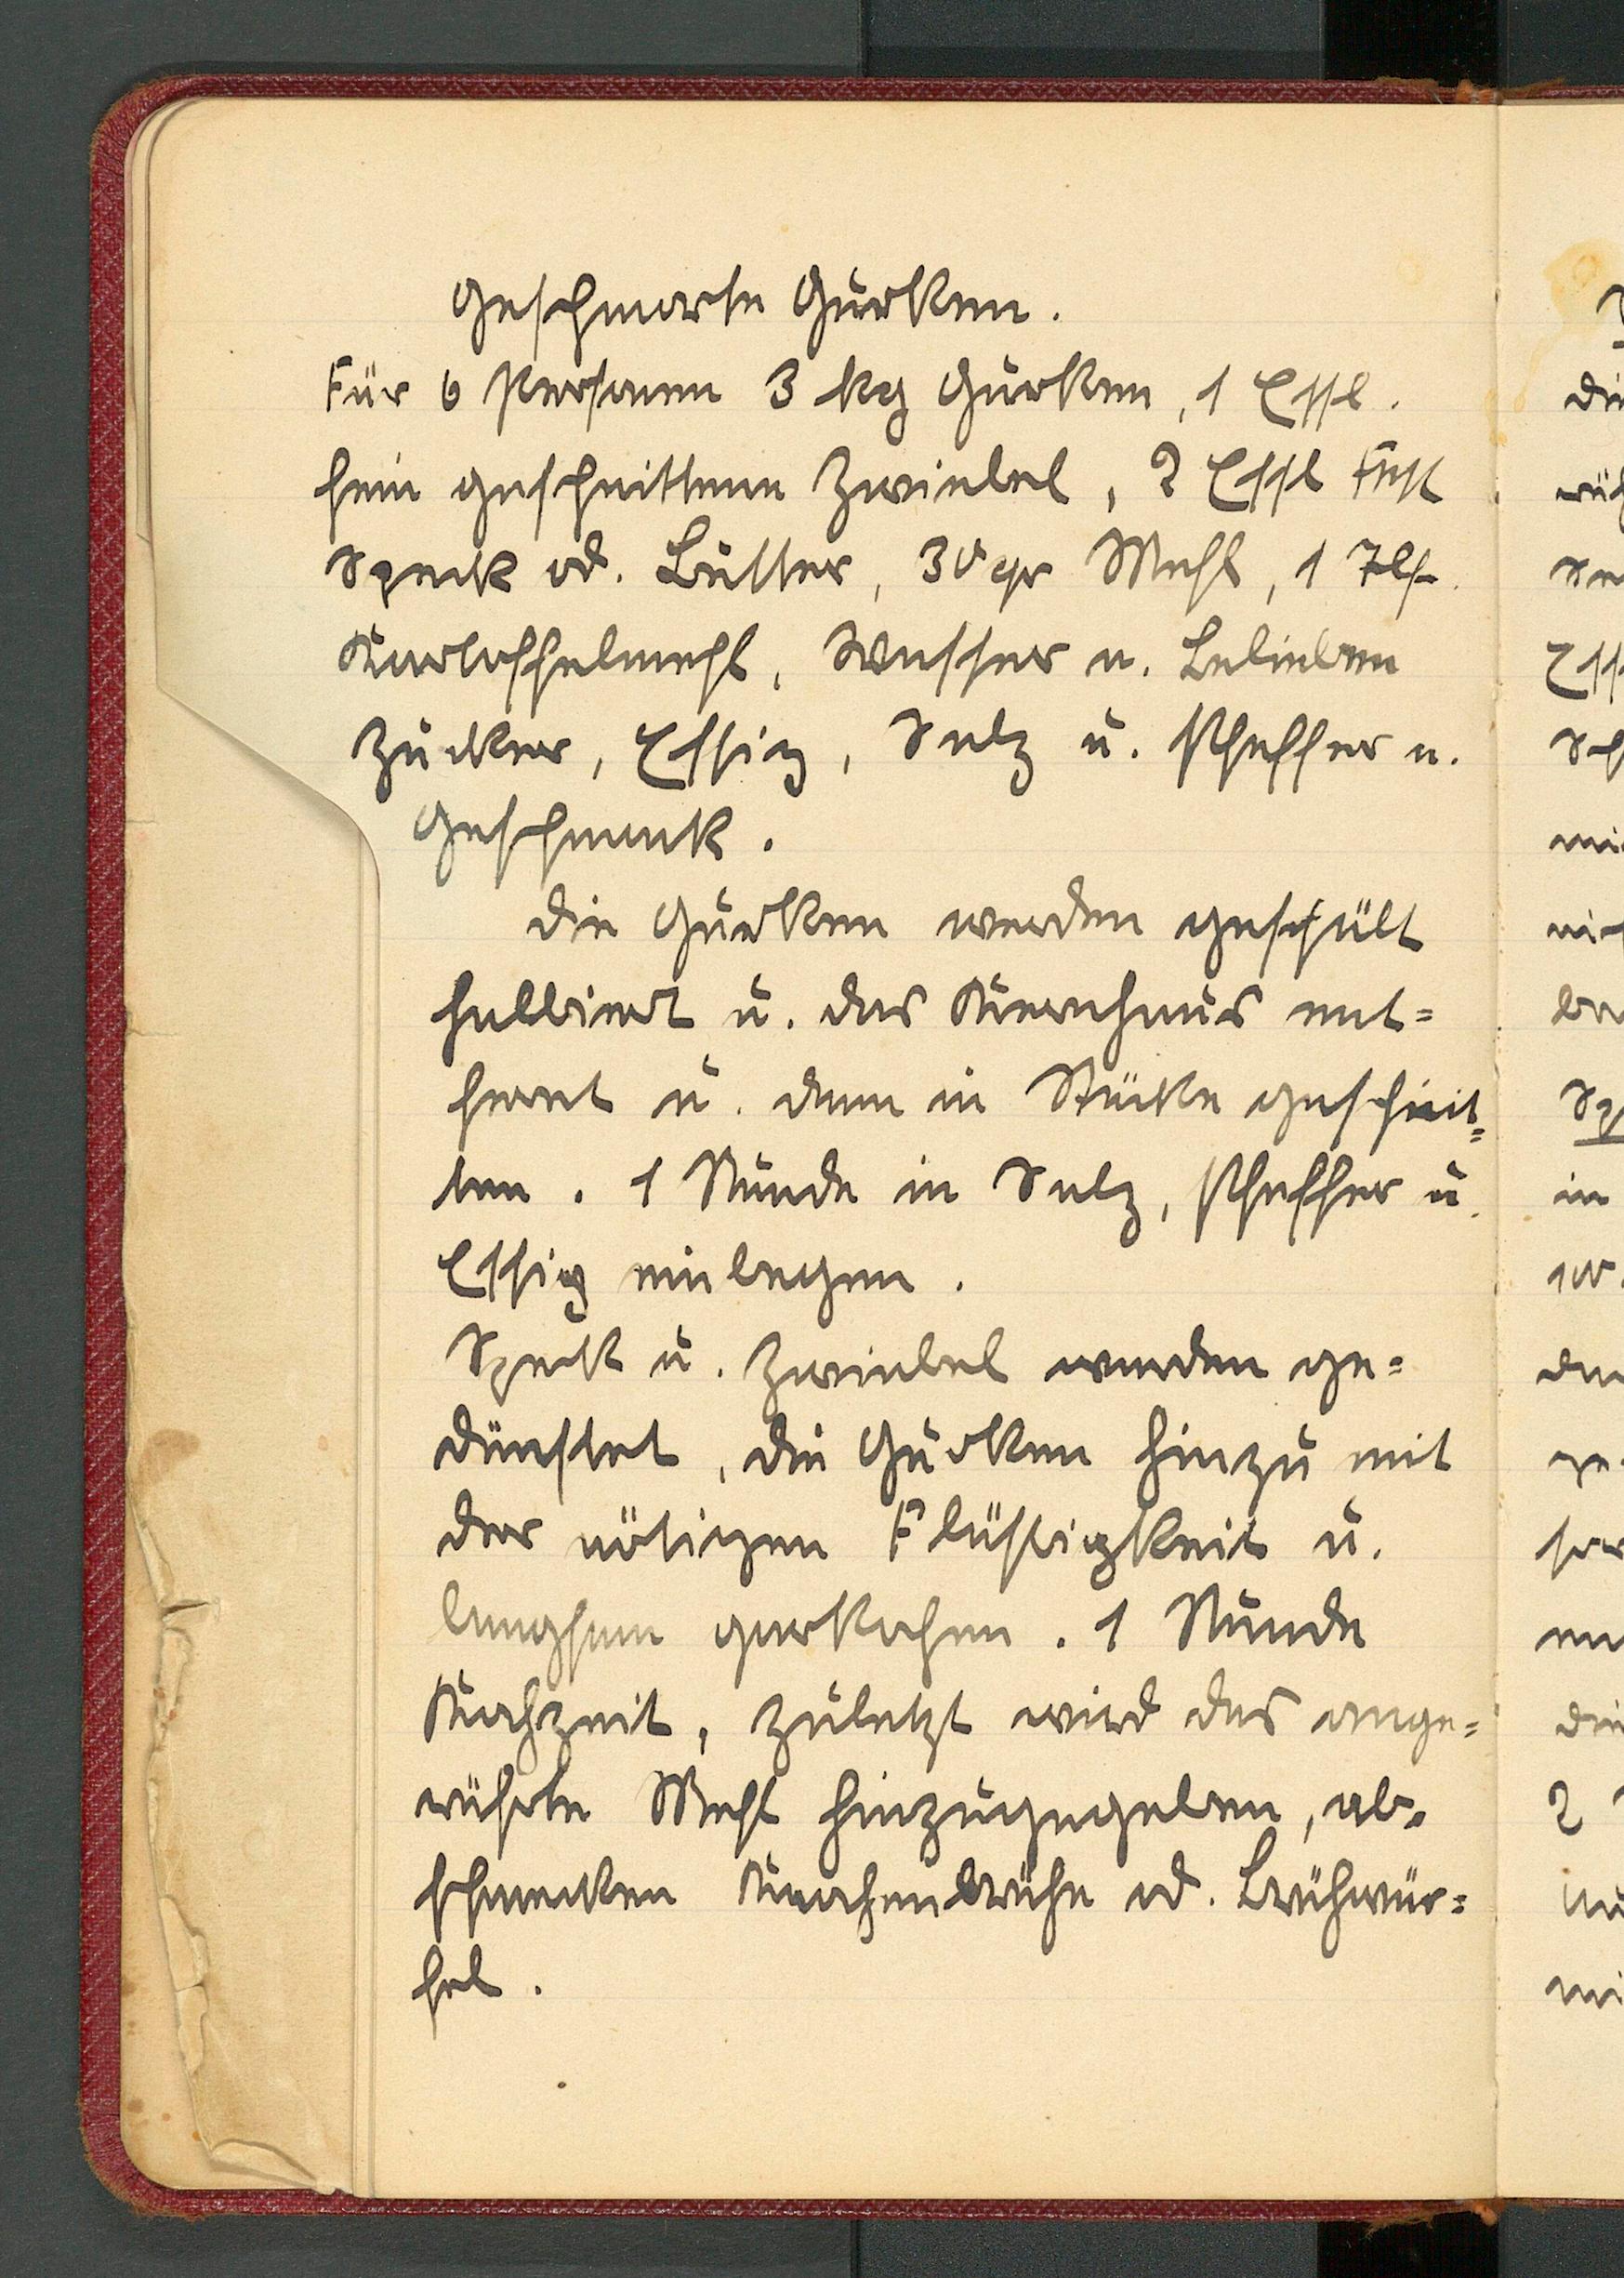 Geschmorte Gurken.
Für 6 Personen 3 kg Gurken, 1 Essl.
fein geschnittene Zwiebel, 2 Essl Fett
Speck od. Butter, 30 gr Mehl, 1 Tlf.
Kartoffelmehl, Wasser n. Belieben
Zucker, Essig, Salz u. Pfeffer n.
Geschmack.
Die Gurken werden geschält
halbiert u. das Kernhaus ent=
fernt u. dann in Stücke geschnit=
ten. 1 Stunde in Salz, Pfeffer u.
Essig einlegen.
Speck u. Zwiebel werden ge=
dünstet, die Gurken hinzu mit
der nötigen Flüssigkeit u.
langsam garkochen. 1 Stunde
Kochzeit, zuletzt wird das ange=
rührte Mehl hinzugegeben, ab=
schmecken Knochenbrühe od. Brühwür=
fel.